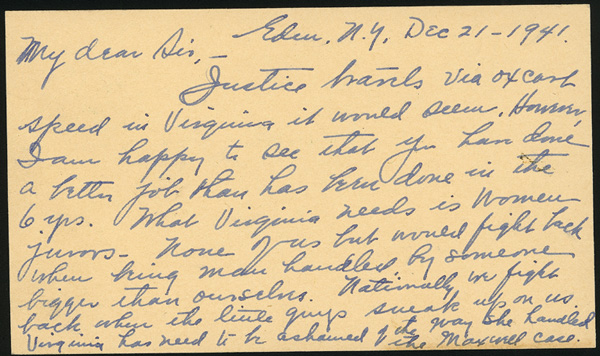 Eden, N.Y., Dec 21-1941.
My dear Sir,-
Justice travels via oxcart
speed in Virginia it would seem. However,
I am happy to see that you have done
a better job than has been done in the
6 yrs. What Virginia needs is women
jurors- None of us but would fight back
when being man handled by someone
bigger than ourselves. Nationally, we fight
back when the little guys sneak up on us.
Virginia has need to be ashamed of the way she handled
the Maxwell case.